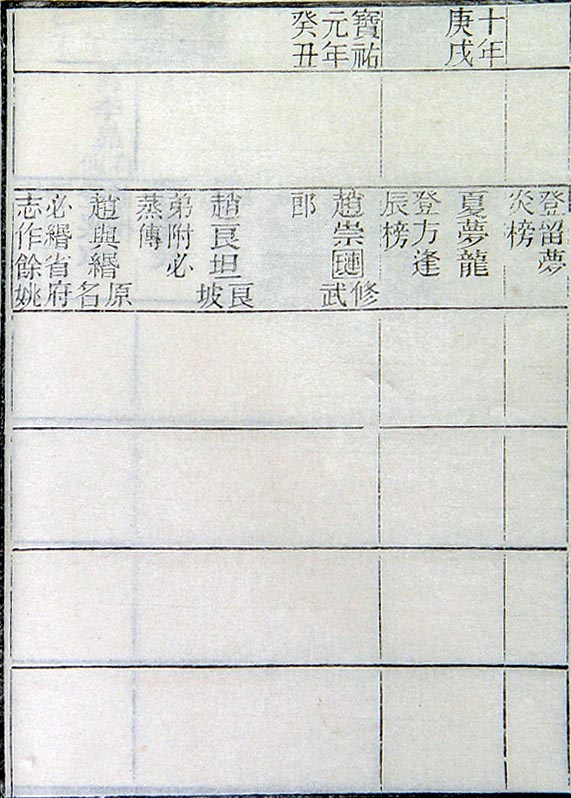 十年
庚戌
寶祐
元年
癸丑
登留夢
炎榜
夏夢龍
登方逢
辰榜
趙崇
修武
郎
趙良坦
良坡
弟附必
蒸傳
趙與縉
原名
必縉省府
志作餘姚